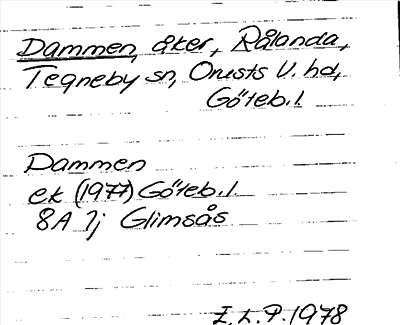 Dammen, åker, Rålanda,
Tegneby sn, Orusts V. hd,
Göteb. l.
Dammen
ek (1977) Göteb. l.
8A 7j Glimsås
I. L. P. 1978